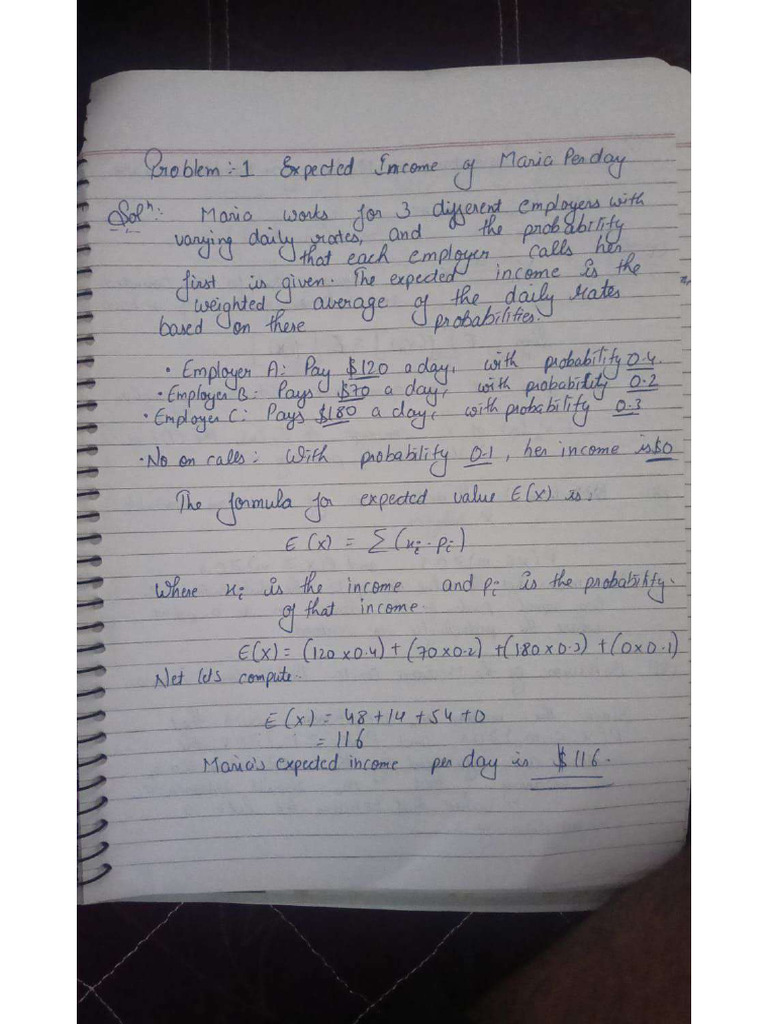 Problem:- 1 Expected Income of Maria Per day
Solⁿ: Maria works for 3 different employers with
varying daily rates, and the probability
that each employer calls her
first is given. The expected income is the
weighted average of the daily rates
based on these probabilities.
• Employer A: Pay $120 a day, with probability 0.4.
• Employer B: Pays $70 a day, with probability 0.2
• Employer C: Pays $180 a day, with probability 0.3
• No on calls: With probability 0.1, her income is $0
The formula for expected value E(x) is:
E(x) = Σ(xi · Pi)
Where xi is the income and Pi is the probability
of that income.
E(X) = (120 x 0.4) + (70 x 0.2) + (180 x 0.3) + (0 x 0.1)
Net let's compute.
E(x) = 48 + 14 + 54 + 0
= 116
Maria's expected income per day is $116.